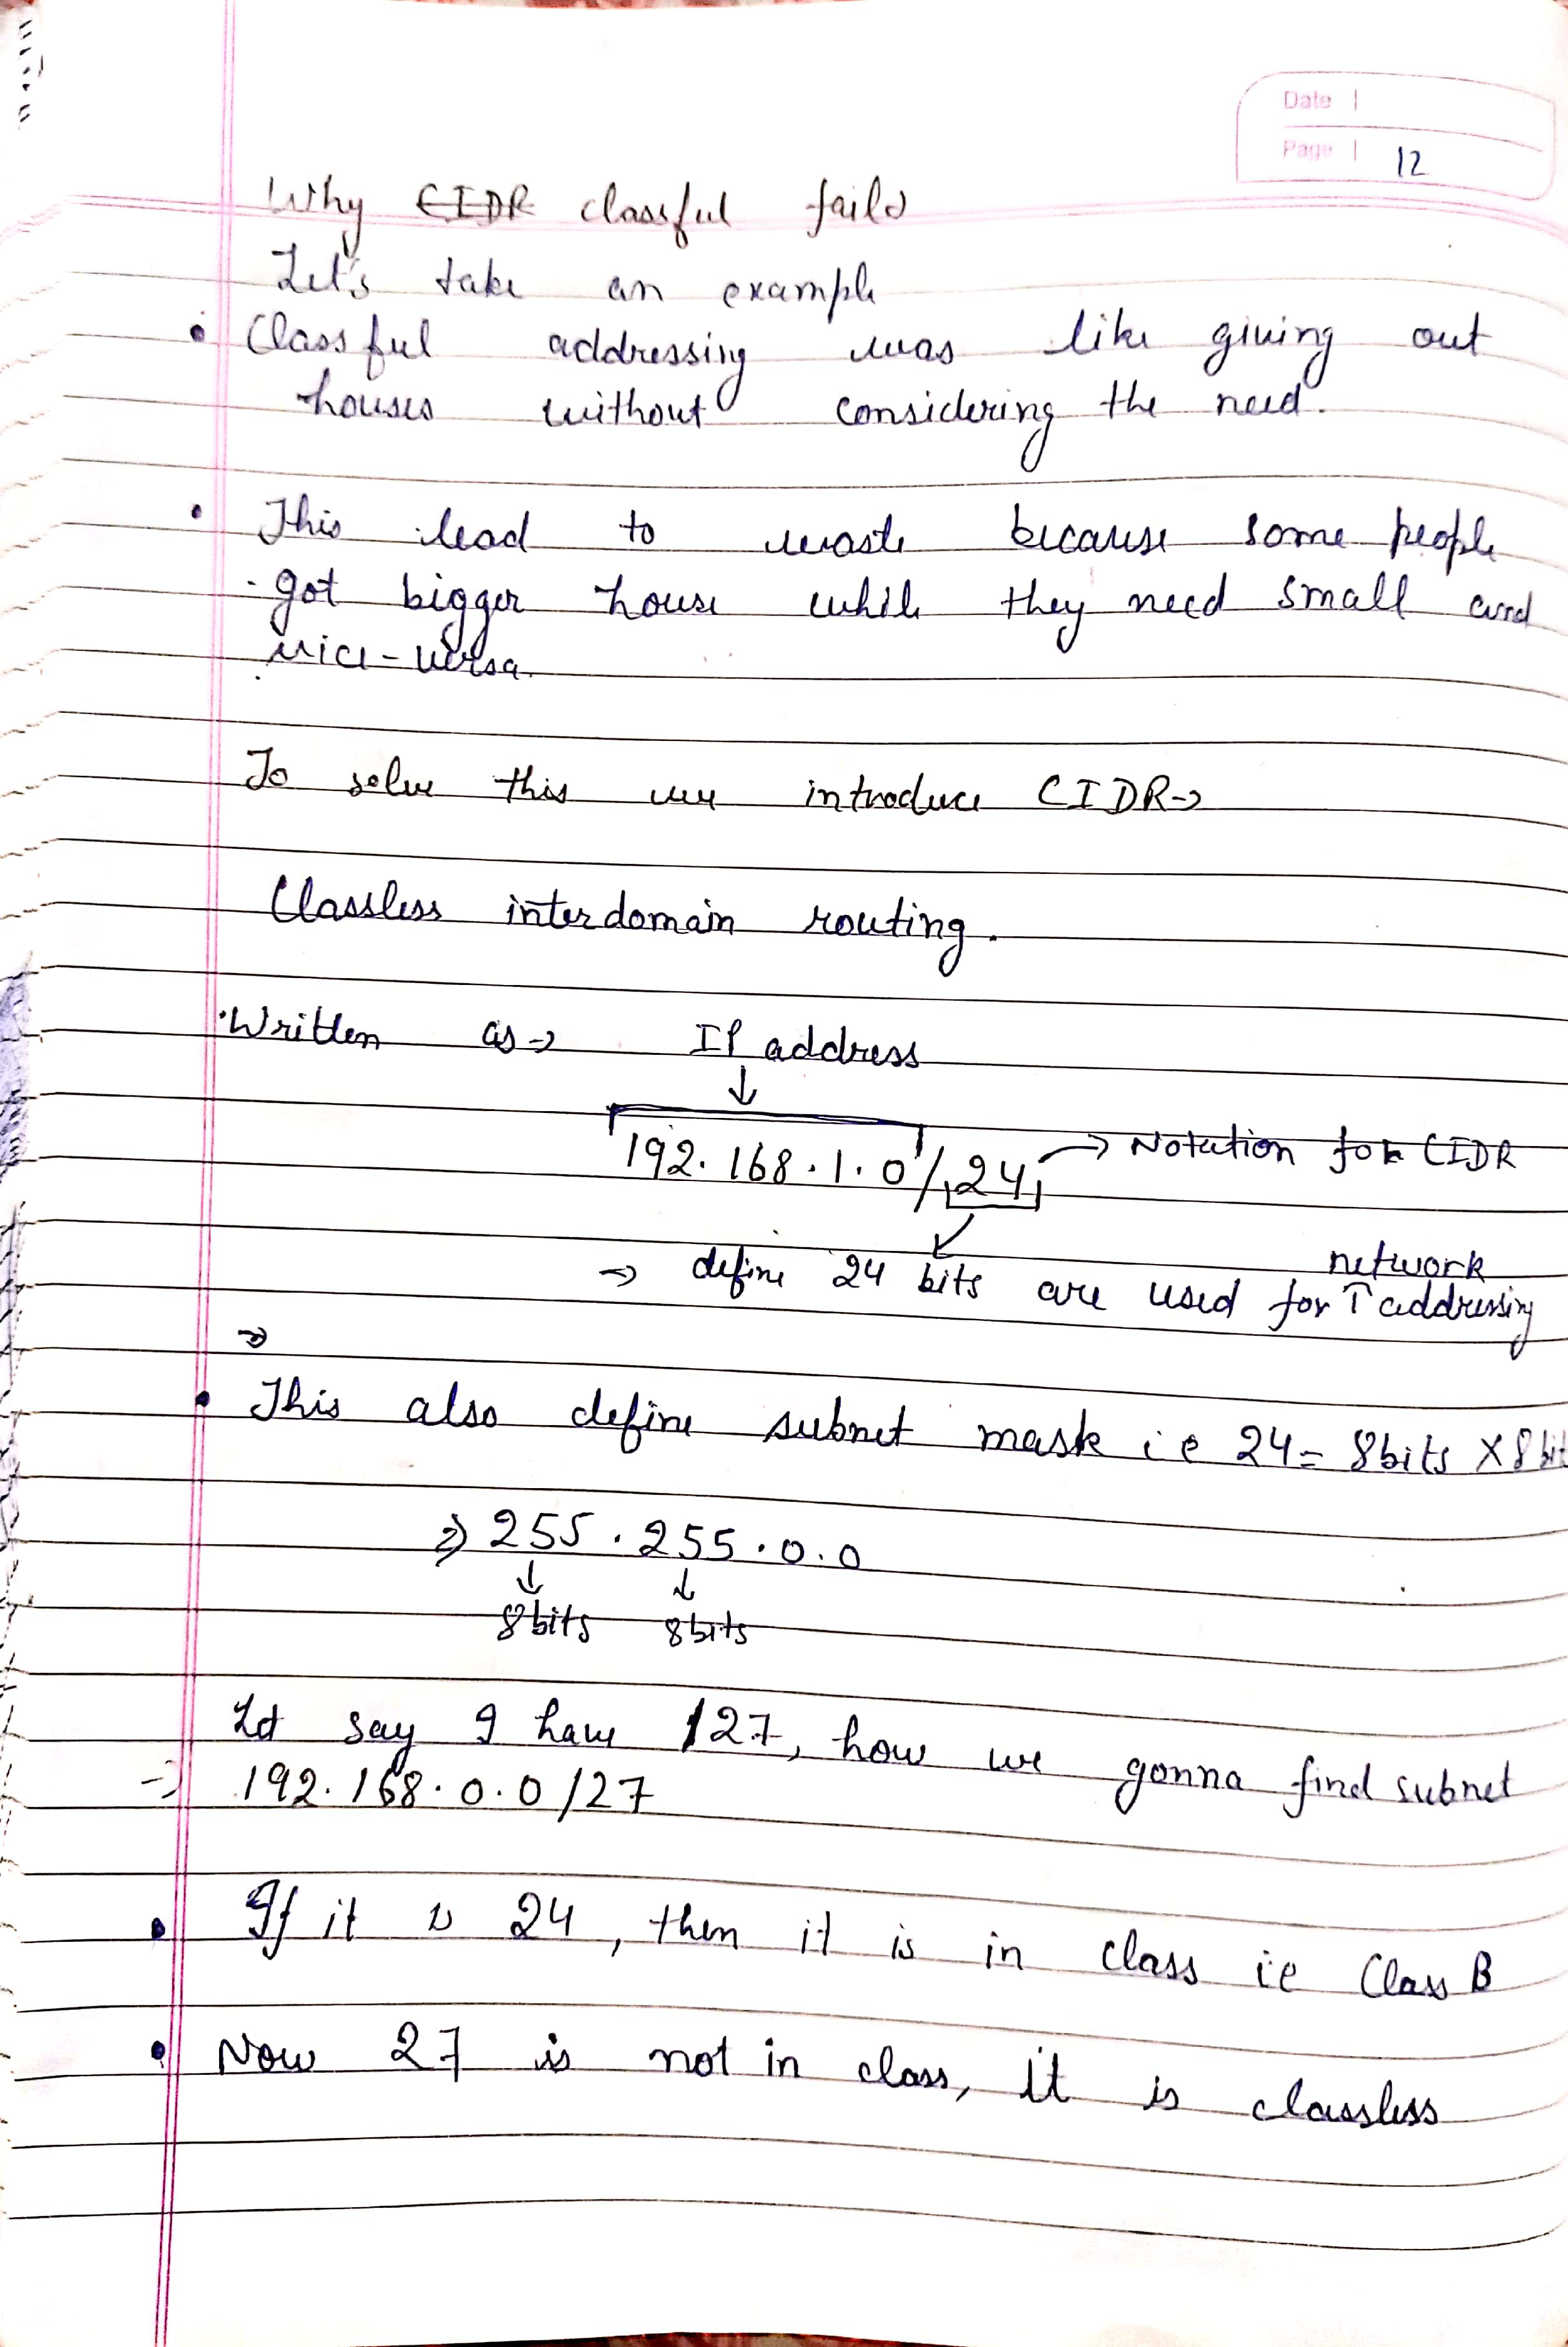 Date
Page 12
Why CIDR classful faild
Let's take an example
• Classful addressing was like giving out
houses without considering the need.
• This lead to waste because some people
got bigger house while they need small and
vice-versa.
To solve this we introduce CIDR→
Classless interdomain routing.
• Written as → IP address
↓
192.168.1.0/24 → Notation for CIDR
network
⇒ define 24 bits are used for ↑ addressing
⇒
• This also define subnet mask i e 24 = 8bits X 8 bit
⇒ 255.255.0.0
↓ ↓
8bits 8bits
Let say I have 127, how we gonna find subnet
→ 192.168.0.0/27
• If it is 24, then it is in class ie Class B
• Now 27 is not in class, it is classless